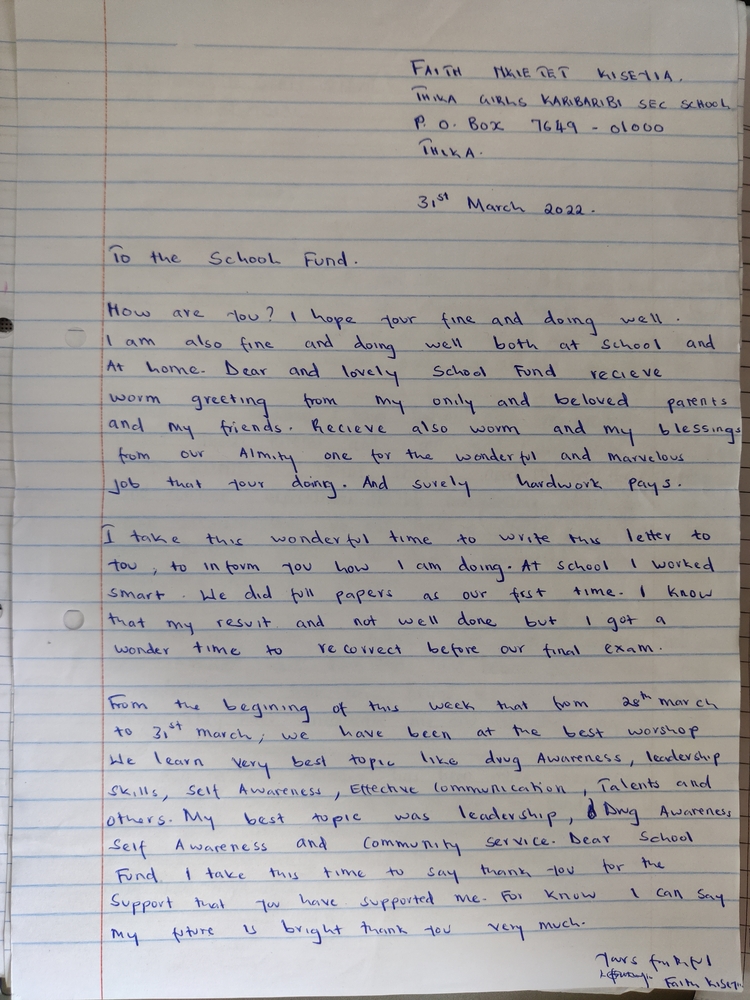 FAITH NKIE TET KISENIA.
THIKA GIRLS KARIBARIBI SEC SCHOOL
P. O. BOX 7649 - 01000
THIKA.
31st March 2022.
To the School Fund.
How are you? I hope your fine and doing well.
I am also fine and doing well both at school and
At home. Dear and lovely School Fund recieve
worm greeting from my only and beloved parents
and my friends. Recieve also worm and my blessings
from our Almity one for the wonderful and marvelous
job that your doing. And surely hardwork pays.
I take this wonderful time to write this letter to
you, to inform you how I am doing. At school I worked
smart. We did full papers as our frst time. I know
that my result and not well done but I got a
wonder time to recorrect before our final exam.
From the begining of this week that from 28th march
to 31st march, we have been at the best worshop
We learn very best topic like drug Awareness, leadership
skills, Self Awareness, Effective Communication, Talents and
others. My best topic was leadership, Drug Awareness
Self Awareness and Community service. Dear School
Fund I take this time to say thank you for the
Support that you have supported me. For know I can say
my future is bright thank you very much.
Yours faithful
Faith Kisen